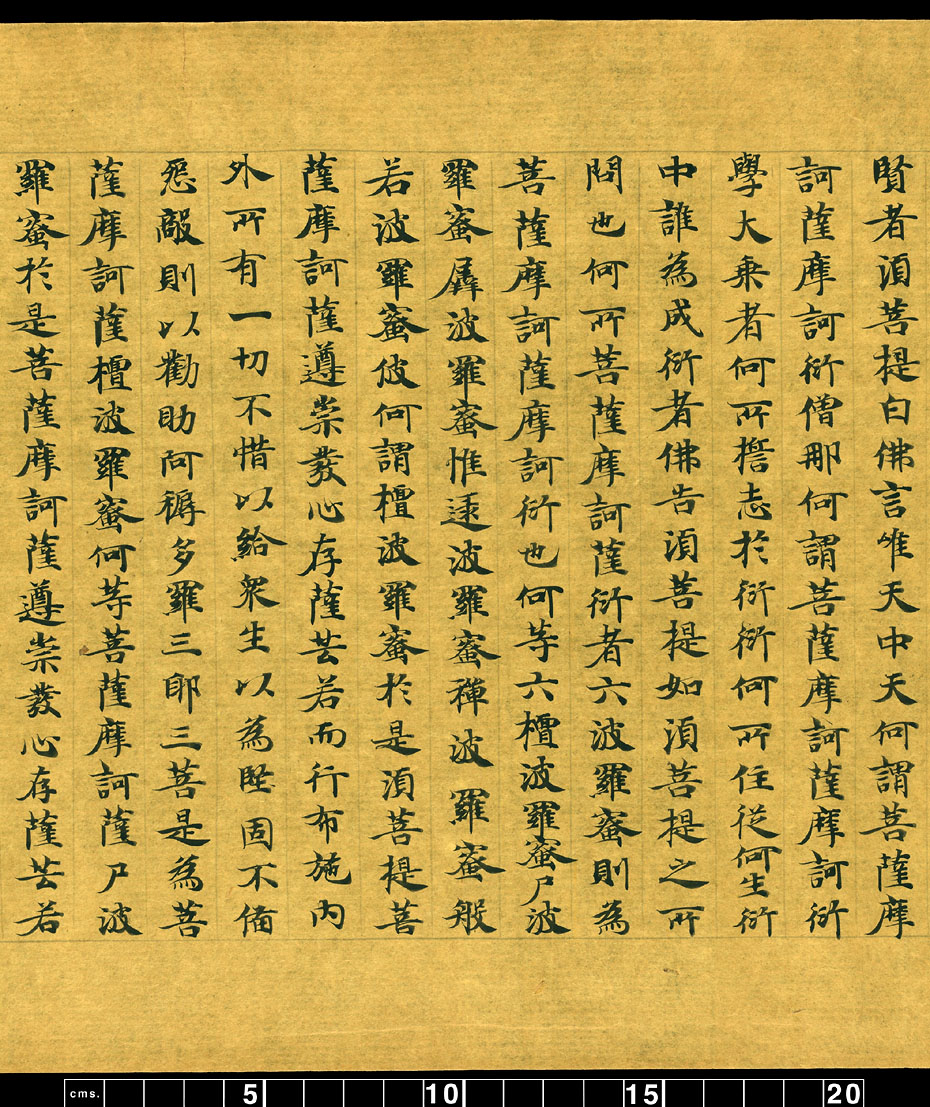 賢者湏菩提白佛言唯天中天何謂菩薩摩
訶薩摩訶衍僧那何謂菩薩摩訶薩摩訶衍
學大乘者何所擔志於衍衍何所住從何生衍
中誰為成衍者佛告湏菩提如湏菩提之所
問也何所菩薩摩訶薩衍者六波羅蜜則為
菩薩摩訶薩摩訶衍也何等六檀波羅蜜尸波
羅蜜羼波羅蜜惟逮波羅蜜禪波羅蜜般
若波羅蜜彼何謂檀波羅蜜於是湏菩提菩
薩摩訶薩遵崇發心存薩芸若而行布施内
外所有一切不惜以給衆生以為堅固不備
怨敵則以勸助阿耨多羅三耶三菩是為菩
薩摩訶薩檀波羅蜜何等菩薩摩訶薩尸波
羅蜜於是菩薩摩訶薩遵崇發心存薩芸若
cms. 5 10 15 20